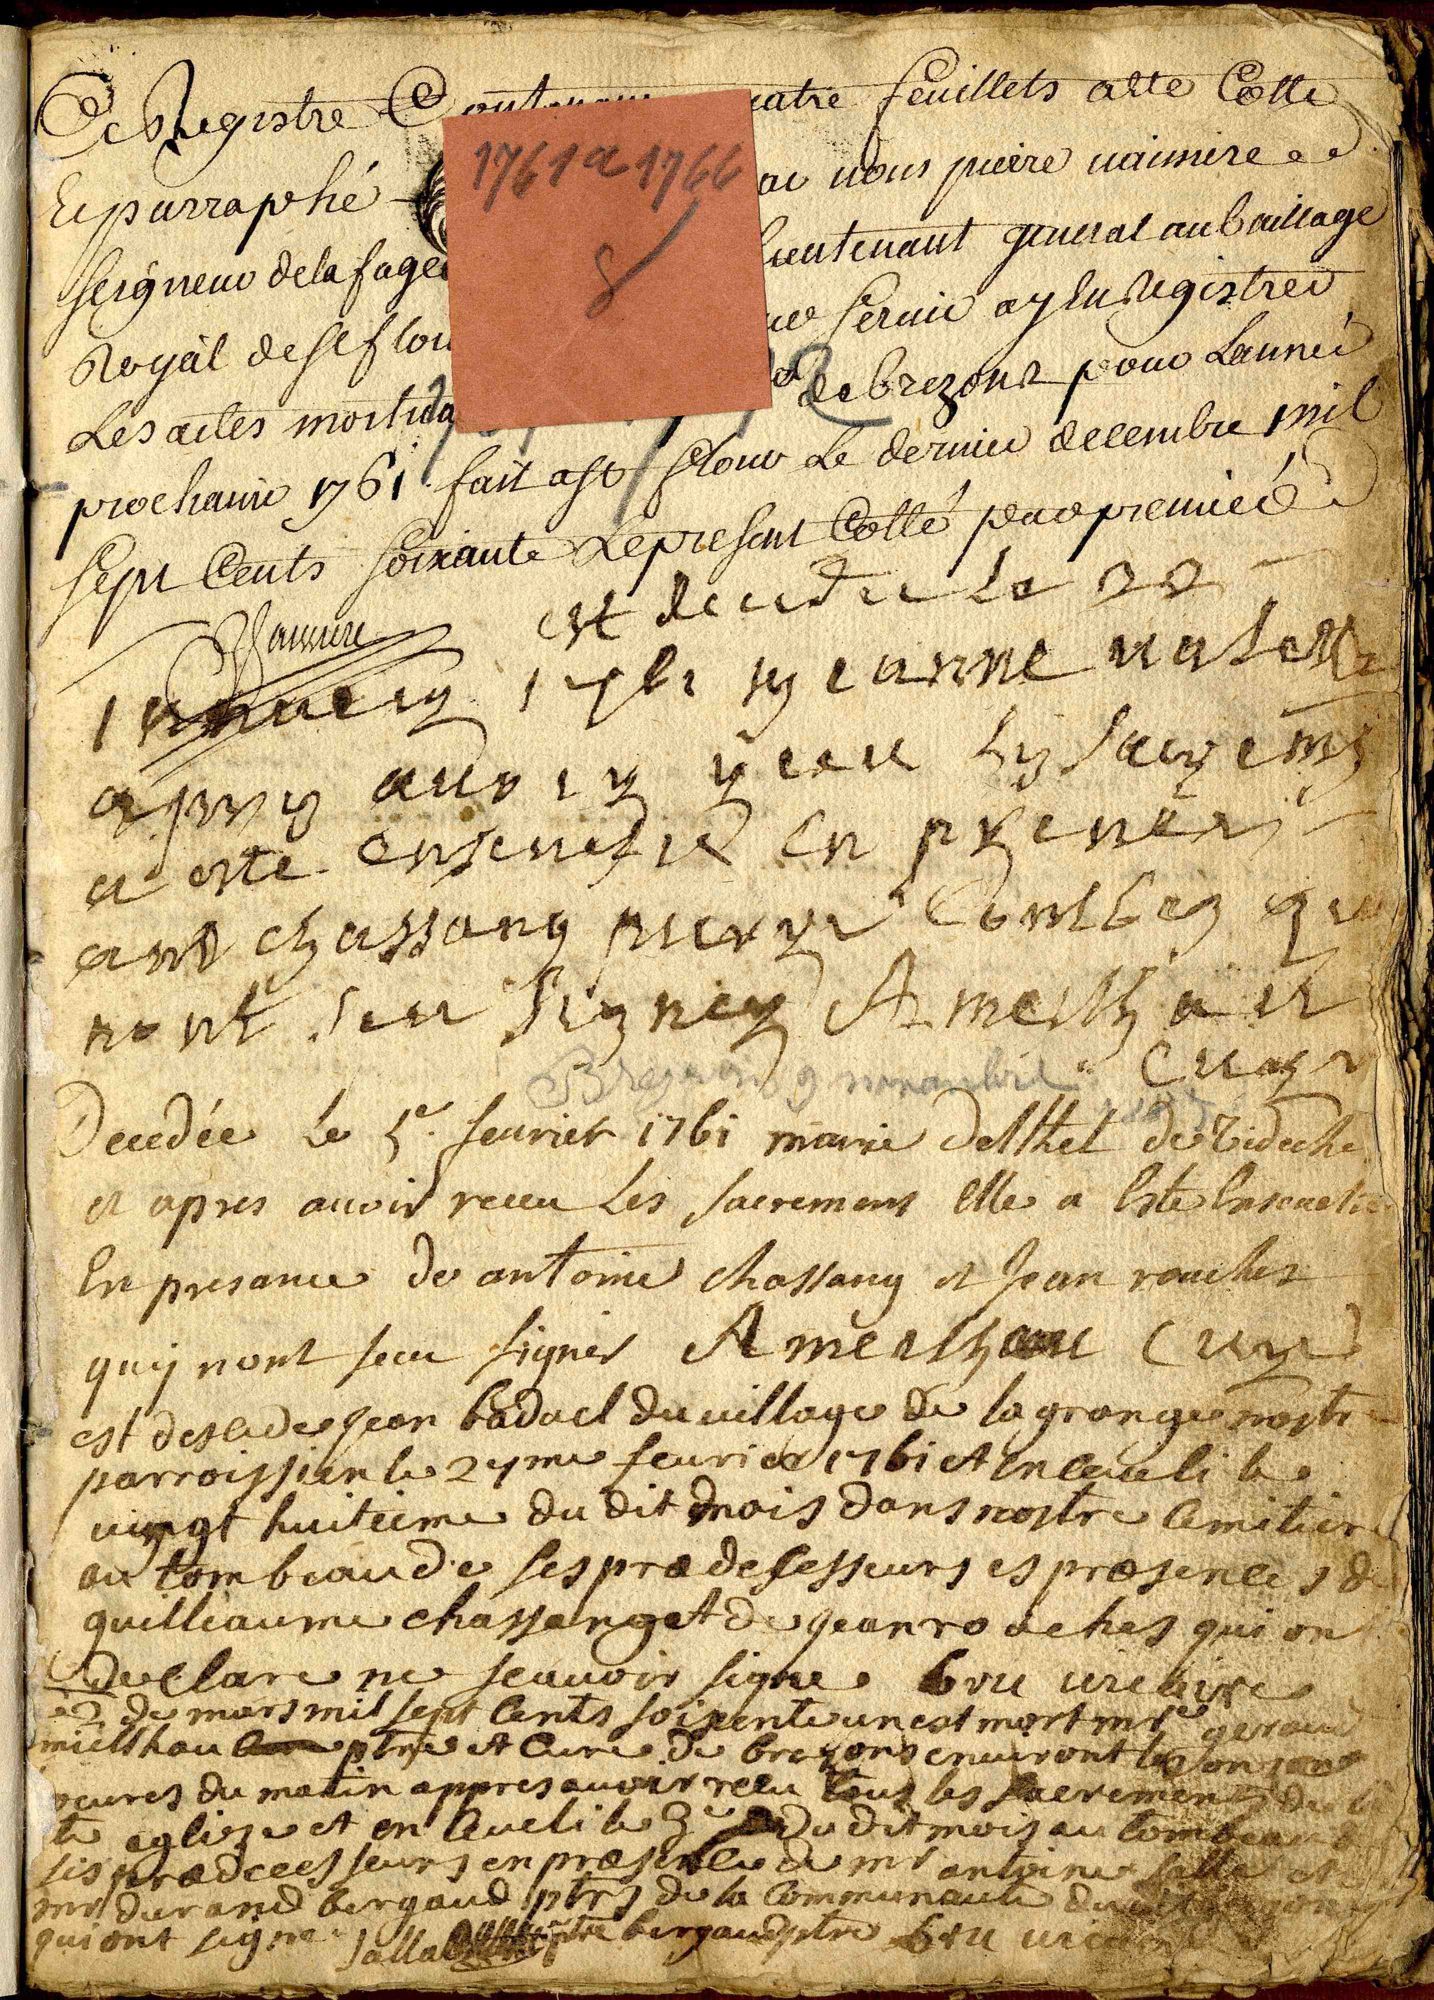 Ce Registre Contenant quatre feuillets a été Cotté
Et parraphé par nous pierre vaissiere
seigneur de la fage lieutenant general au baillage
Royal de St flour pour servir a y Enregistrer
Les actes mortuaires de brezons pour Lannée
prochaine 1761 fait a St flour Le dernier decembre mil
sept Cents soixante Le present Cotté pour premier
1761 a 1766
8
Vaissiere
est decedee Le 22
janviey 1761 jeanne
apres avoiy reseu Les sacremens
a este ensevelie En presence
chassang pierre Combes qui
nont seu signey Ameilhau
Curé
Brezons 9 novembre
Decedée Le 5e fevrier 1761 marie Delthel de
et apres avoir receu Les sacremens Elle a Este Ensevelie
En presance de antoine chassang et Jean rouches
quy nont seu signer Ameilhau Curé
est descede jean baduel du village de la grange nostre
parroissien le 27me fevrier 1761 et Enseveli le
vingt huitieme du dit mois dans nostre Cemitiere
au tombeau de ses prædecesseurs es præsences de
guilleaume chassang et de jean roches qui ont
declare ne scavoir signe bru vicaire
Le 2 de mars mil sept Cents soixente un est mort mre geraud
mielhau ptre et Cure de brezons environt les onze
heures du matin appres avoir recu tous les sacrements de la
ste eglize et enseveli le 3e du dit mois au tombeau de
ses prædecesseurs en præsence de mr antoine salla et
mr durand bergaud ptres de la Communaute du dit brezons
qui ont signe salla ptre bergaud ptre bru vicaire